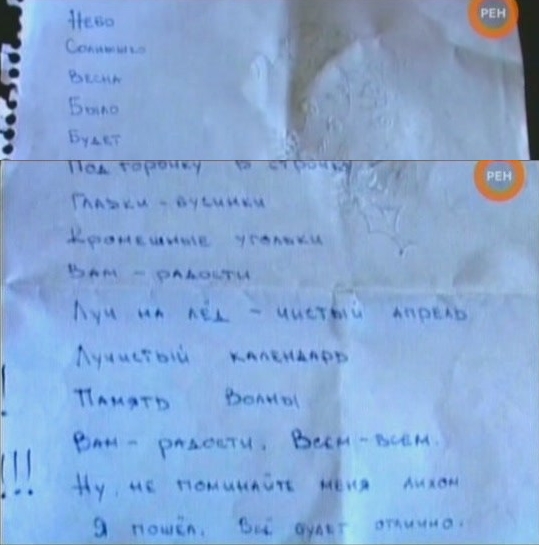 РЕН
Небо
Солнышко
Весна
Было
Будет
РЕН
Под горочку в строчку
Глазки - бусинки
Кромешные угольки
Вам - радости
Луч на лёд - чистый апрель
Лучистый календарь
!
Память Волны
Вам - радости. Всем-всем.
!!!
Ну, не поминайте меня лихом
Я пошёл. Всё будет отлично.